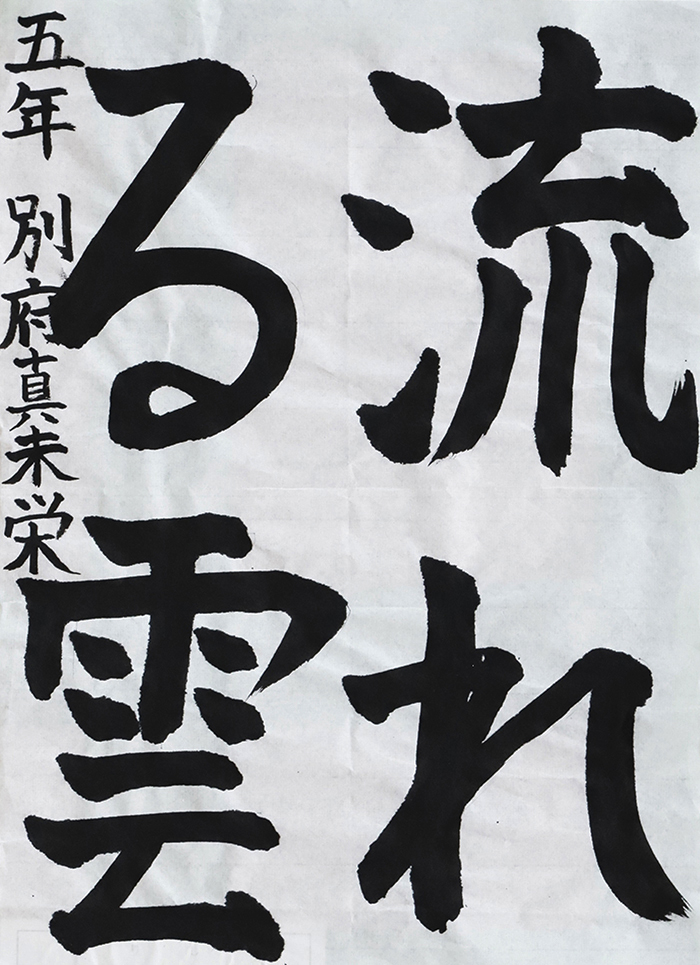 流れ
る雲
五年 別府真未栄